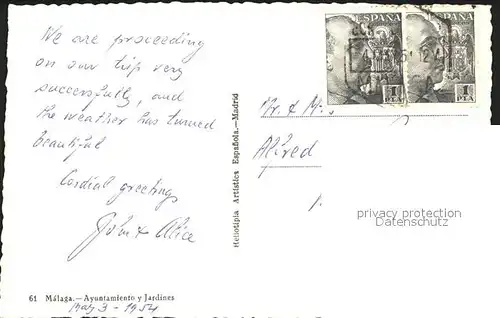 We are proceeding
on our trip very
successfully, and
the weather has turned
beautiful
Cordial greetings
John & Alice
61 Málaga.—Ayuntamiento y Jardines
May 3 - 1954
Heliotipia Artística Española.—Madrid
ESPAÑA ESPAÑA
1 PTA 1 PTA
Mr. & M
Alfred
privacy protection
Datenschutz